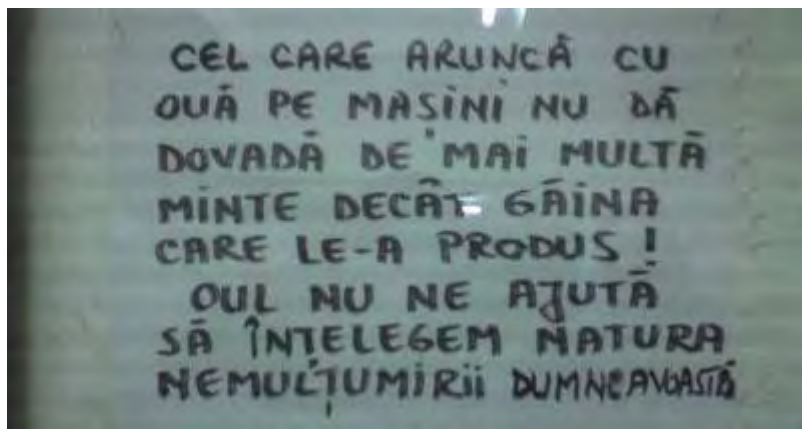 CEL CARE ARUNCĂ CU
OUĂ PE MAȘINI NU DĂ
DOVADĂ DE MAI MULTĂ
MINTE DECÂT GĂINA
CARE LE-A PRODUS!
OUL NU NE AJUTĂ
SĂ ÎNȚELEGEM NATURA
NEMULȚUMIRII DUMNEAVOASTĂ